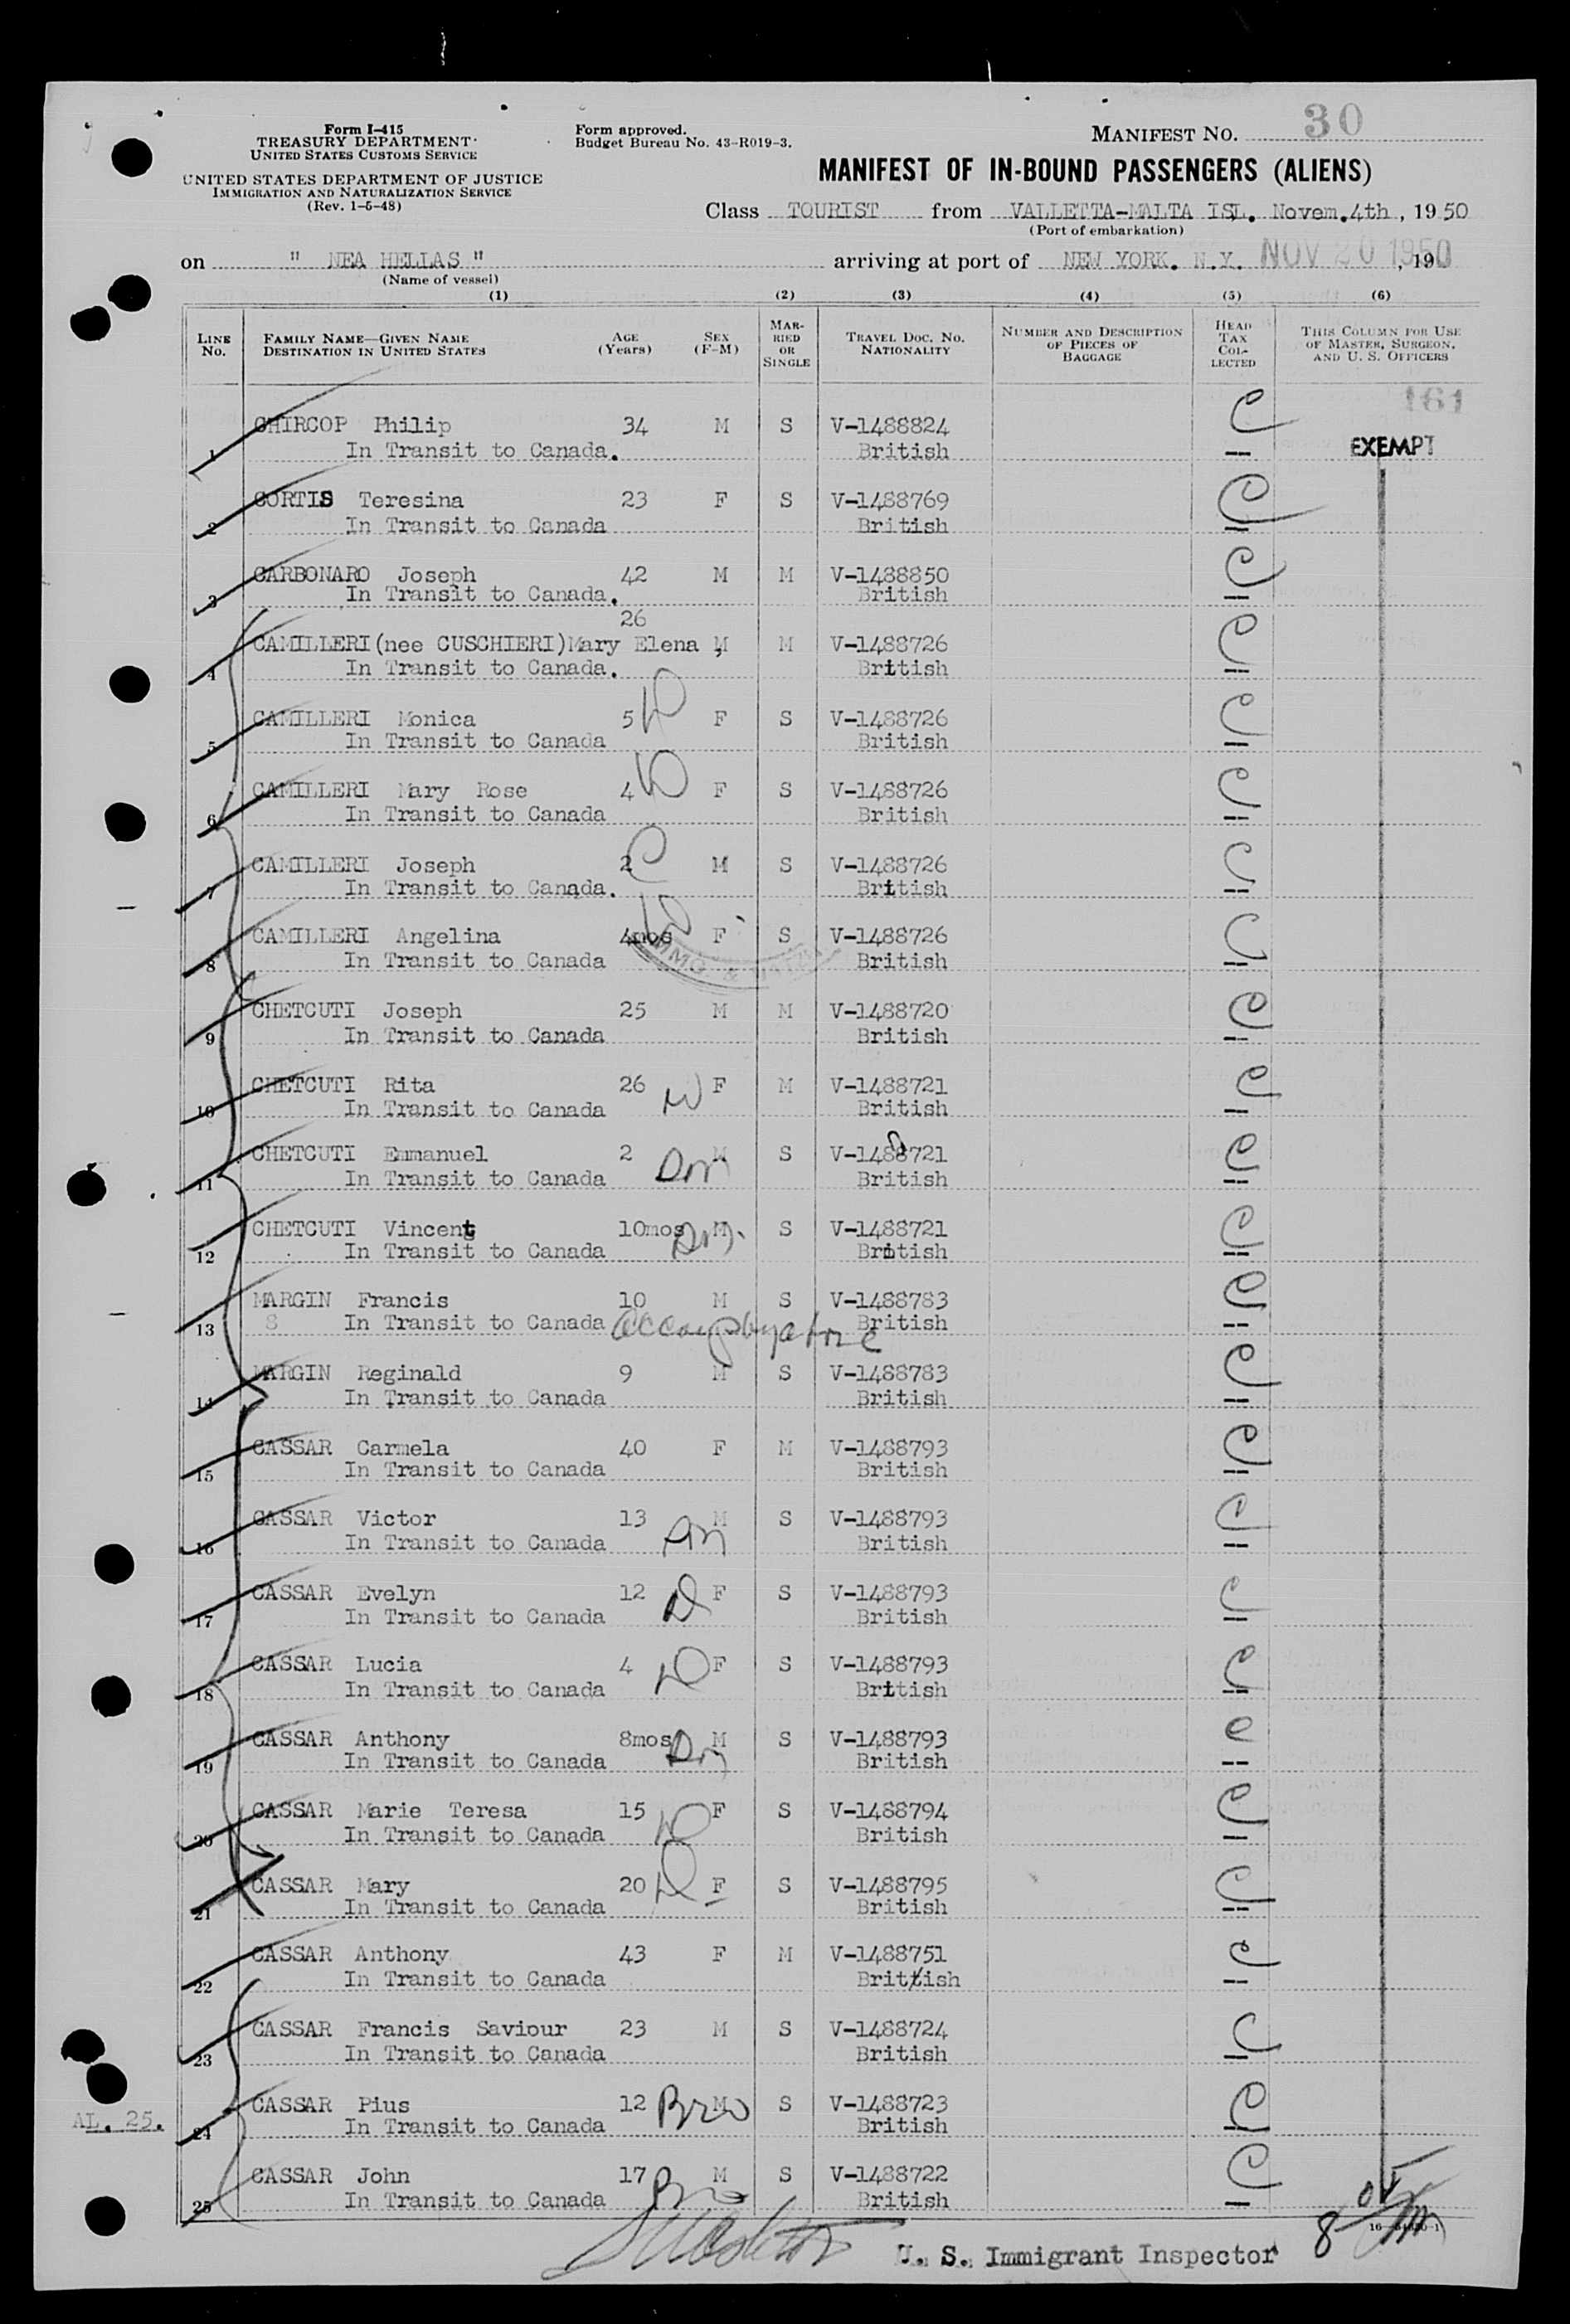 Form I-415
TREASURY DEPARTMENT
UNITED STATES CUSTOMS SERVICE
UNITED STATES DEPARTMENT OF JUSTICE
IMMIGRATION AND NATURALIZATION SERVICE
(Rev. 1-5-48)
Form approved.
Budget Bureau No. 43-R019-3.
MANIFEST NO. 30
MANIFEST OF IN-BOUND PASSENGERS (ALIENS)
Class TOURIST from VALLETTA-MALTA ISL. Novem.4th, 1950
(Port of embarkation)
on " NEA HELLAS " arriving at port of NEW YORK. N.Y. NOV 20 1950, 19
(Name of vessel)
(1) (2) (3) (4) (5) (6)
LINE NO. FAMILY NAME—GIVEN NAME DESTINATION IN UNITED STATES AGE (Years) SEX (F-M) MARRIED OR SINGLE TRAVEL DOC. NO. NATIONALITY NUMBER AND DESCRIPTION OF PIECES OF BAGGAGE HEAD TAX COLLECTED THIS COLUMN FOR USE OF MASTER, SURGEON, AND U. S. OFFICERS
161
CHIRCOP Philip 34 M S V-1488824
1 In Transit to Canada. British EXEMPT
CORTIS Teresina 23 F S V-1488769
2 In Transit to Canada British
CARBONARO Joseph 42 M M V-1488850
3 In Transit to Canada. British
26
CAMILLERI(nee CUSCHIERI)Mary Elena M M V-1488726
4 In Transit to Canada. British
CAMILLERI Monica 5 F S V-1488726
5 In Transit to Canada British
CAMILLERI Mary Rose 4 F S V-1488726
6 In Transit to Canada British
CAMILLERI Joseph 2 M S V-1488726
7 In Transit to Canada. British
CAMILLERI Angelina 4mos F S V-1488726
8 In Transit to Canada British
CHETCUTI Joseph 25 M M V-1488720
9 In Transit to Canada British
CHETCUTI Rita 26 F M V-1488721
10 In Transit to Canada British
CHETCUTI Emmanuel 2 M S V-1488721
11 In Transit to Canada British
CHETCUTI Vincent 10mos M S V-1488721
12 In Transit to Canada British
MARGIN Francis 10 M S V-1488783
13 S In Transit to Canada British
MARGIN Reginald 9 M S V-1488783
14 In Transit to Canada British
CASSAR Carmela 40 F M V-1488793
15 In Transit to Canada British
CASSAR Victor 13 M S V-1488793
16 In Transit to Canada British
CASSAR Evelyn 12 F S V-1488793
17 In Transit to Canada British
CASSAR Lucia 4 F S V-1488793
18 In Transit to Canada British
CASSAR Anthony 8mos M S V-1488793
19 In Transit to Canada British
CASSAR Marie Teresa 15 F S V-1488794
20 In Transit to Canada British
CASSAR Mary 20 F S V-1488795
21 In Transit to Canada British
CASSAR Anthony 43 F M V-1488751
22 In Transit to Canada British
CASSAR Francis Saviour 23 M S V-1488724
23 In Transit to Canada British
CASSAR Pius 12 M S V-1488723
AL. 25.
24 In Transit to Canada British
CASSAR John 17 M S V-1488722
25 In Transit to Canada British
U. S. Immigrant Inspector